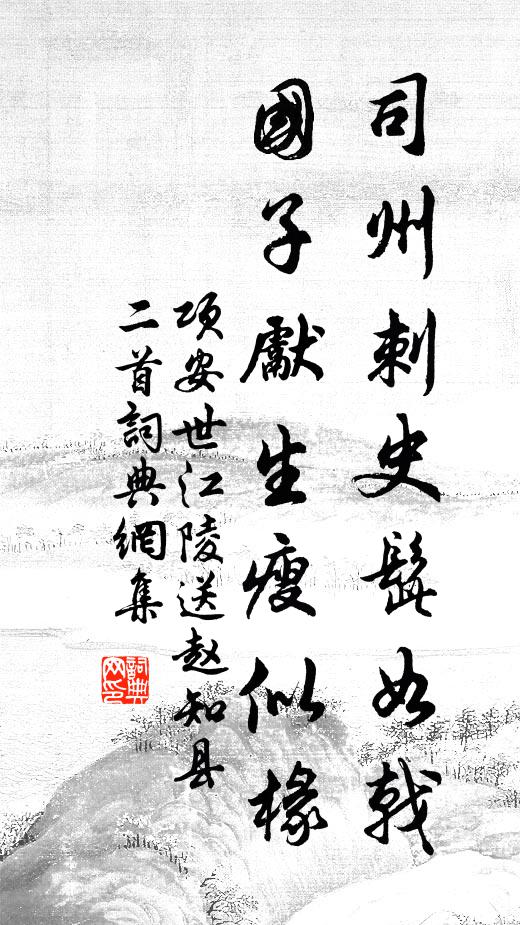 司州刺史髭如戟
國子獻生瘦似椽
项安世江陵送赵知县
二首詞典網集
詞典
网印